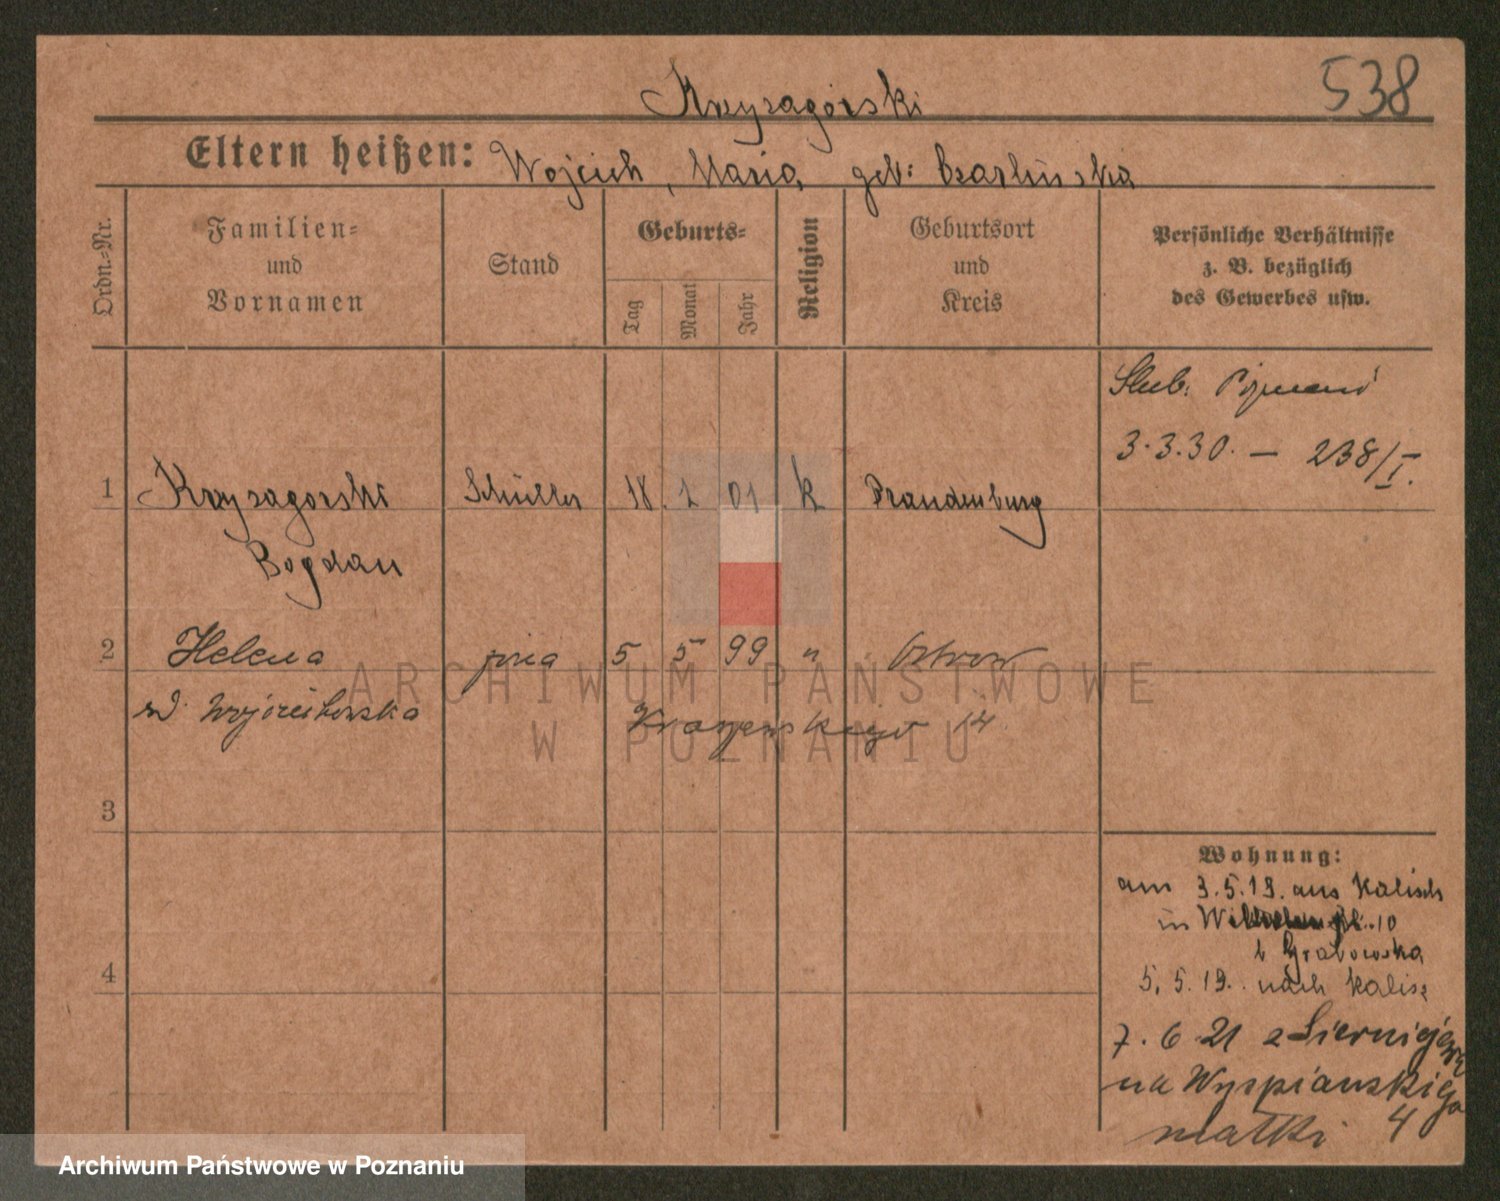 538
Krzyżagórski
Eltern heißen: Wojciech, Maria geb: Czarlińska
Ordn.-Nr.
Familien-
und
Vornamen
Stand
Geburts-
Tag
Monat
Jahr
Religion
Geburtsort
und
Kreis
Persönliche Verhältnisse
z. B. bezüglich
des Gewerbes usw.
Ślub: Poznań
3.3.30. — 238/I.
1 Krzyżagórski Schüller 18. 1 01 k Brandenburg
Bogdan
2 Helena żona 5 5 99 " Ostrow
Wojciechowska Kraszewskiego 14
3
4
Wohnung:
am 3.5.19. aus Kalisch
in 10
b Grabowska
5.5.19. nach Kalisz
7.6.21 z
na Wyspiańskiego
matki 4
ARCHIWUM PAŃSTWOWE
W POZNANIU
Archiwum Państwowe w Poznaniu